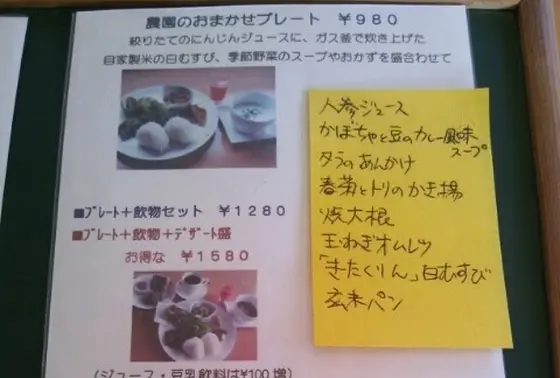 農園のおまかせプレート ￥９８０
絞りたてのにんじんジュースに、ガス釜で炊き上げた
自家製米の白むすび、季節野菜のスープやおかずを盛合わせて
■ﾌﾟﾚｰﾄ＋飲物セット ￥１２８０
■ﾌﾟﾚｰﾄ＋飲物＋ﾃﾞｻﾞｰﾄ盛
お得な ￥１５８０
(ジュース・豆乳飲料は¥100 増)
人参ジュース
かぼちゃと豆のカレー風味
スープ
タラのあんかけ
春菊とトリのかき揚
焼大根
玉ねぎオムレツ
「きたくりん」白むすび
玄米パン